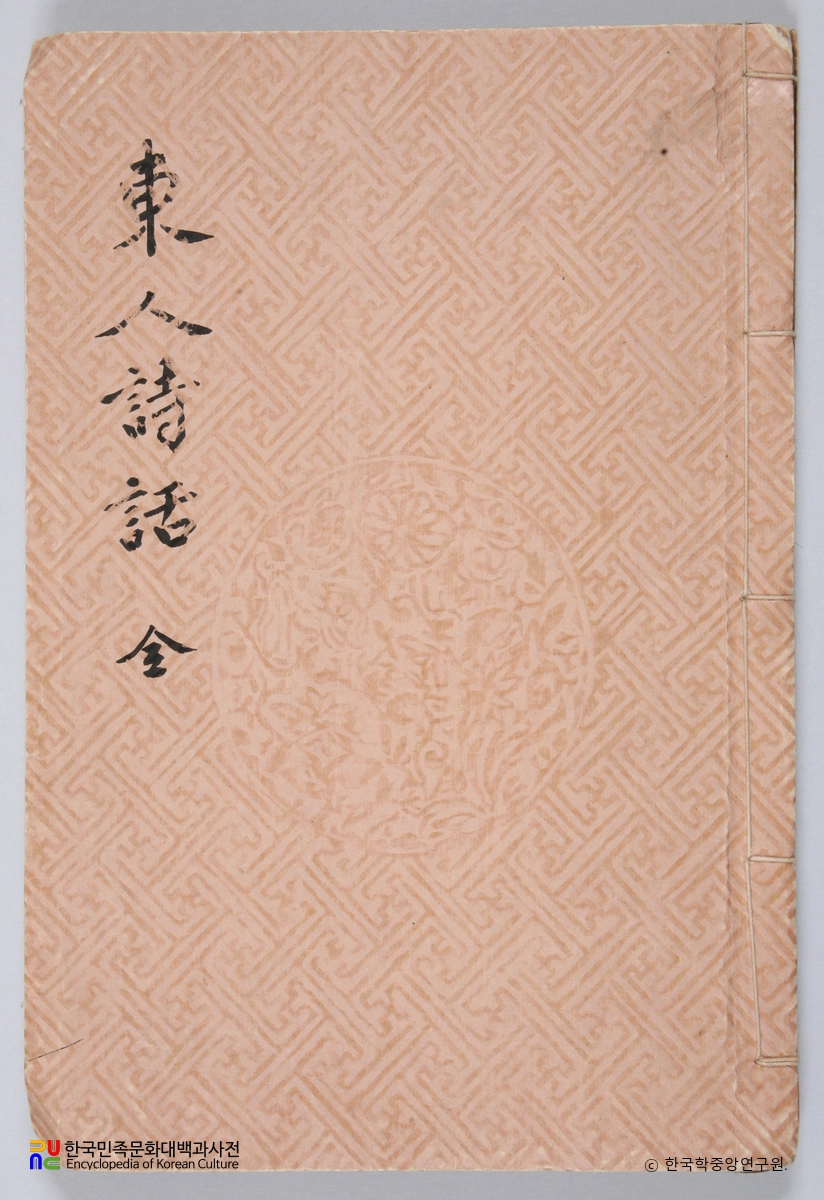 東人詩話 全
한국민족문화대백과사전
Encyclopedia of Korean Culture
© 한국학중앙연구원.